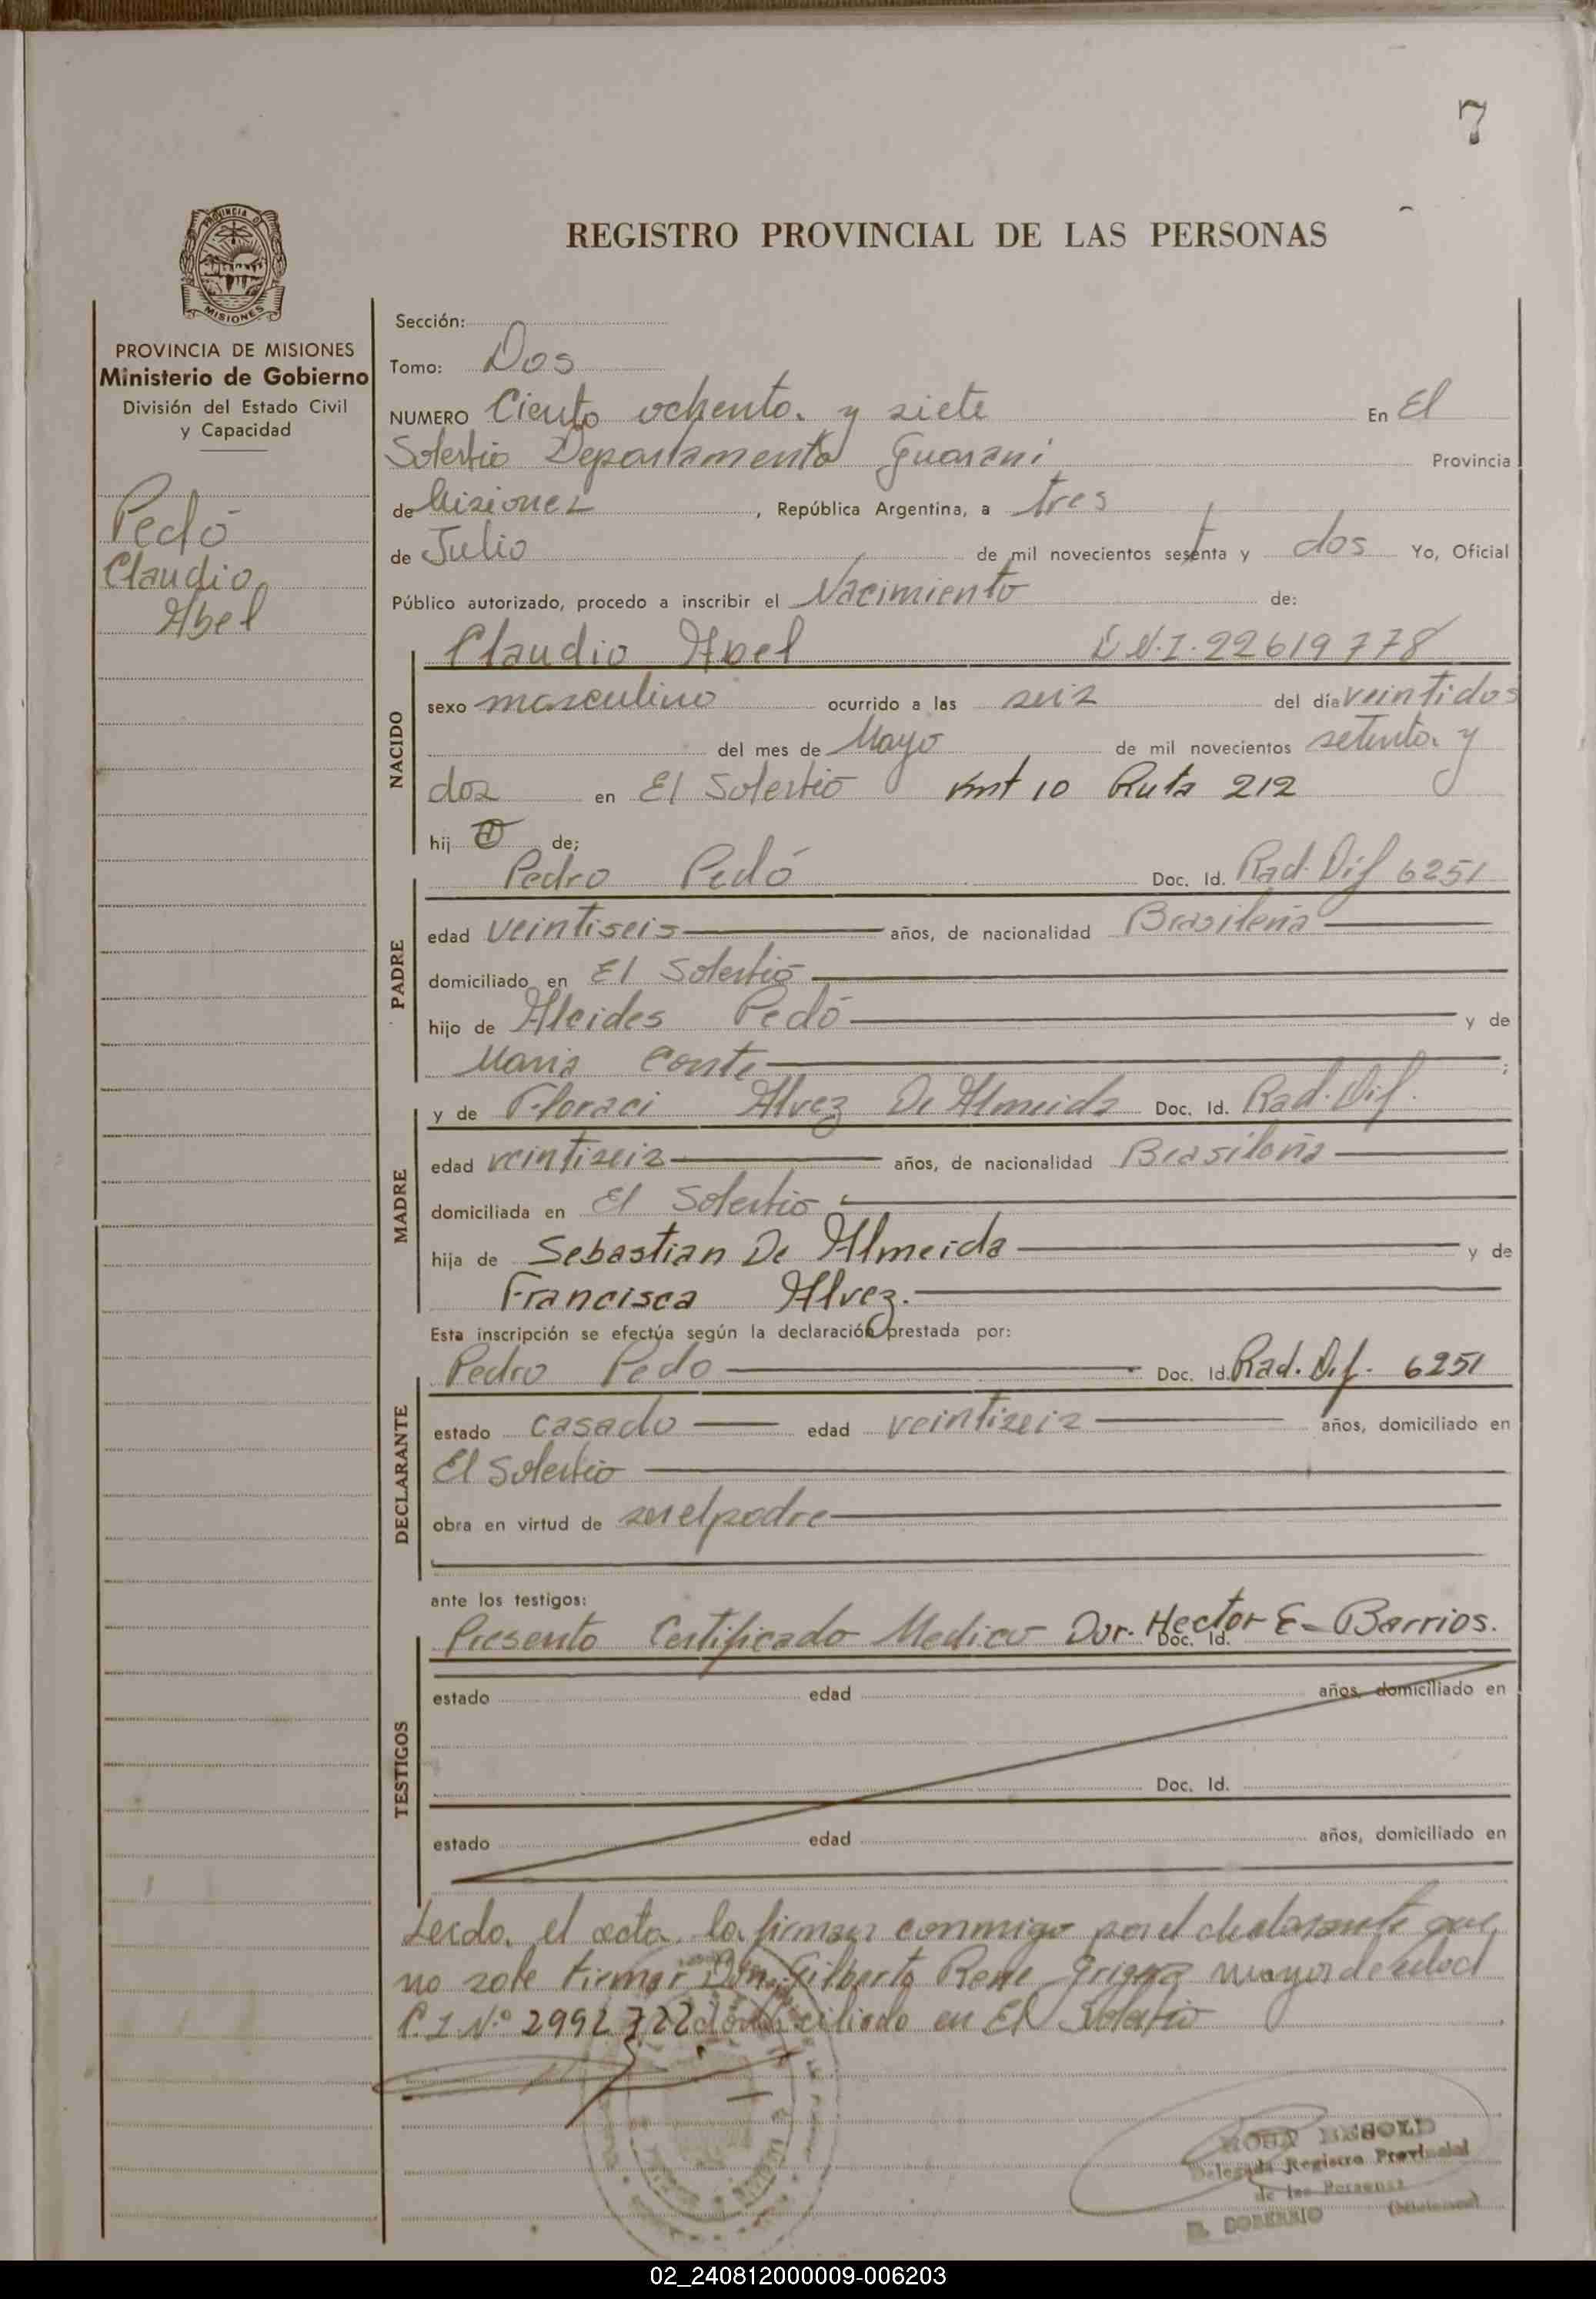 7
PROVINCIA DE
MISIONES
REGISTRO PROVINCIAL DE LAS PERSONAS
PROVINCIA DE MISIONES
Ministerio de Gobierno
División del Estado Civil
y Capacidad
Pedó
Claudio
Abel
Sección:
Tomo: Dos
NUMERO Ciento ochenta y siete En El
Soberbio Departamento Guarani Provincia
de Misiones, República Argentina, a tres
de Julio de mil novecientos setenta y dos Yo, Oficial
Público autorizado, procedo a inscribir el Nacimiento de:
Claudio Abel D.N.I. 22619778
NACIDO
sexo masculino ocurrido a las seis del día veintidos
del mes de Mayo de mil novecientos setenta y
dos en El Soberbio Kmt 10 Ruta 212
hij o de;
PADRE
Pedro Pedó Doc. Id. Rad. Dif 6251
edad veintiseis años, de nacionalidad Brasileña
domiciliado en El Soberbio
hijo de Alcides Pedó y de
Maria Conte;
MADRE
y de Floraci Alvez De Almeida Doc. Id. Rad. Dif.
edad veintiseis años, de nacionalidad Brasileña
domiciliada en El Soberbio
hija de Sebastian De Almeida y de
Francisca Alvez.
Esta inscripción se efectúa según la declaración prestada por:
DECLARANTE
Pedro Pedo Doc. Id. Rad. Dif. 6251
estado casado edad veintiseis años, domiciliado en
El Soberbio
obra en virtud de ser el padre
ante los testigos:
TESTIGOS
Presento Certificado Medico Dor. Hector E. Barrios. Doc. Id.
estado edad años, domiciliado en
Doc. Id.
estado edad años, domiciliado en
Leida el acta la firman conmigo por el declarante que
no sabe firmar Don Gilberto Rene mayor de edad
C.I Nº 2992722 domiciliado en El Soberbio
ROSA BESOLD
Delegada Registro Provincial
de las Personas
EL SOBERBIO (Misiones)
02_240812000009-006203